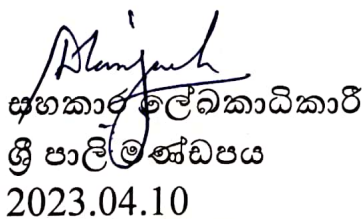 සහකාර ලේඛකාධිකාරී
ශ්‍රී පාලි මණ්ඩපය
2023.04.10